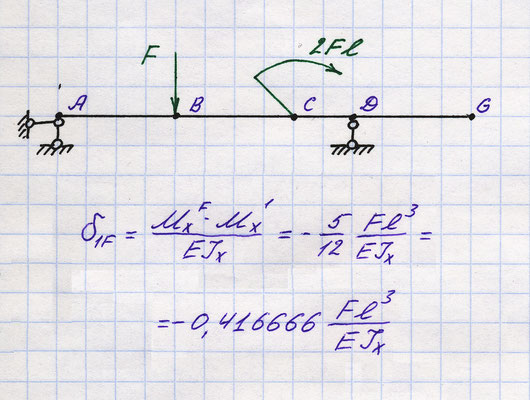 F 2Fl
A B C D G
δ₁F = Mₓᶠ · Mₓ' / EJₓ = - 5/12 Fl³/EJₓ =
= - 0,416666 Fl³/EJₓ